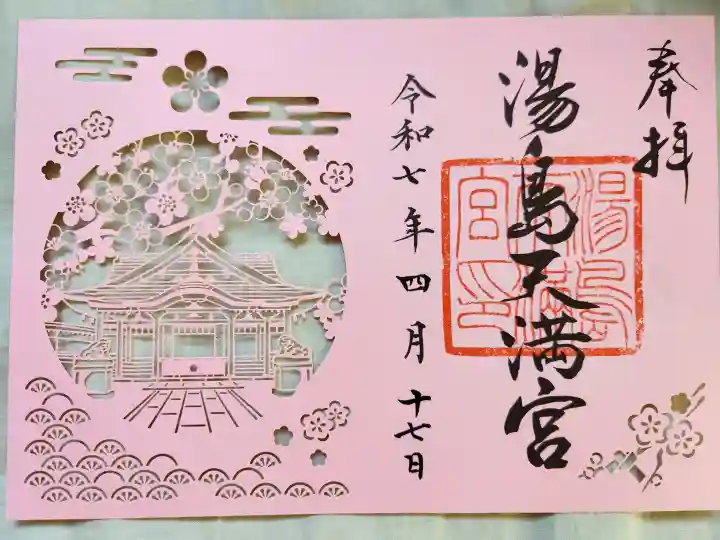 奉拝
湯島天満宮
湯島天満宮印
令和七年四月十七日